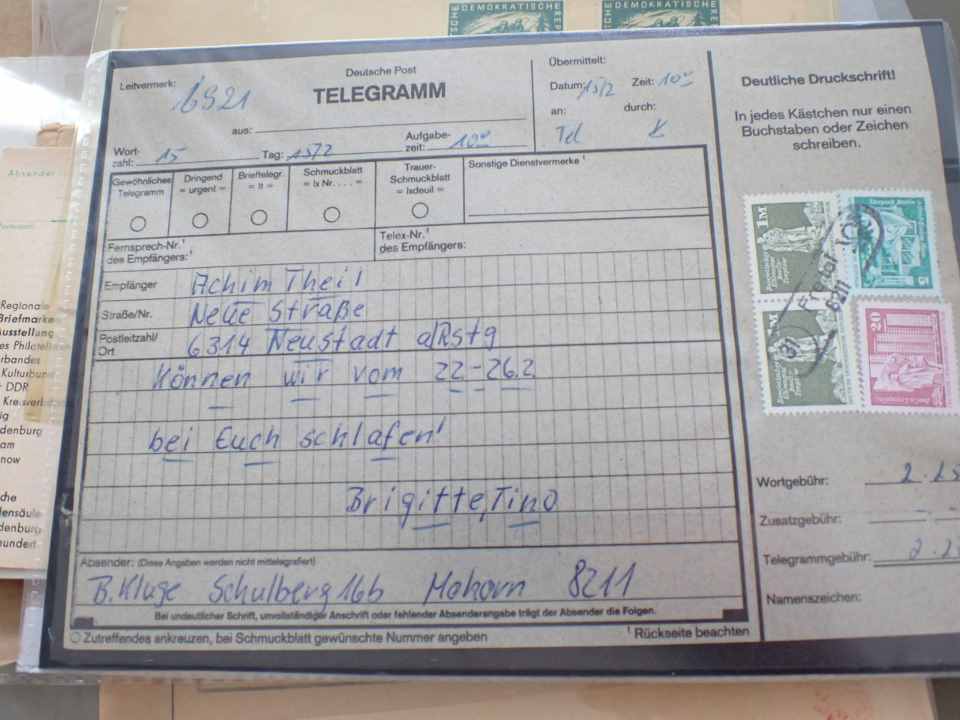 DEMOKRATISCHE
DEMOKRATISCHE
Leitvermerk:
6921
Deutsche Post
TELEGRAMM
aus:
Wort-
zahl: 15
Tag: 15/2
Aufgabe-
zeit: 10⁰⁰
Übermittelt:
Datum: 15/2 Zeit: 10
an: durch:
Tel
Gewöhnliches Telegramm
Dringend = urgent =
Brieftelegr. = lt =
Schmuckblatt = lx Nr. . . . . =
Trauer-Schmuckblatt = lxdeuil =
Sonstige Dienstvermerke ¹
Fernsprech-Nr.¹ des Empfängers:
Telex-Nr.¹ des Empfängers:
Empfänger Achim Theil
Straße/Nr. Neue Straße
Postleitzahl/
Ort 6314 Neustadt a/Rstg
Können wir vom 22-26.2
bei Euch schlafen!
Brigitte, Tino
Absender: (Diese Angaben werden nicht mittelegrafiert)
B. Kluge Schulberg 16b Mohorn 8211
Bei undeutlicher Schrift, unvollständiger Anschrift oder fehlender Absenderangabe trägt der Absender die Folgen.
○ Zutreffendes ankreuzen, bei Schmuckblatt gewünschte Nummer angeben
¹ Rückseite beachten
Deutliche Druckschrift!
In jedes Kästchen nur einen
Buchstaben oder Zeichen
schreiben.
1M
1M
5
20
Wortgebühr: 2.25
Zusatzgebühr: - -
Telegrammgebühr:
Namenszeichen:
Absender
Regionale
Briefmarke
Ausstellung
es Philatelis
rbandes
Kulturbund
DDR
Kreisverb
denburg
am
now
densäule
denburg
hundert